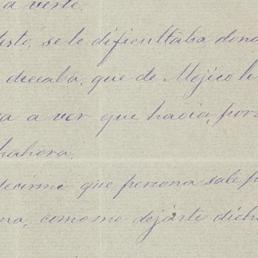 a verte.
esto, se le dificultaba don
decaba, que de Méjico
a a ver que hacia, por
hahora.
decirme que persona sale
na, como me dijiste dich